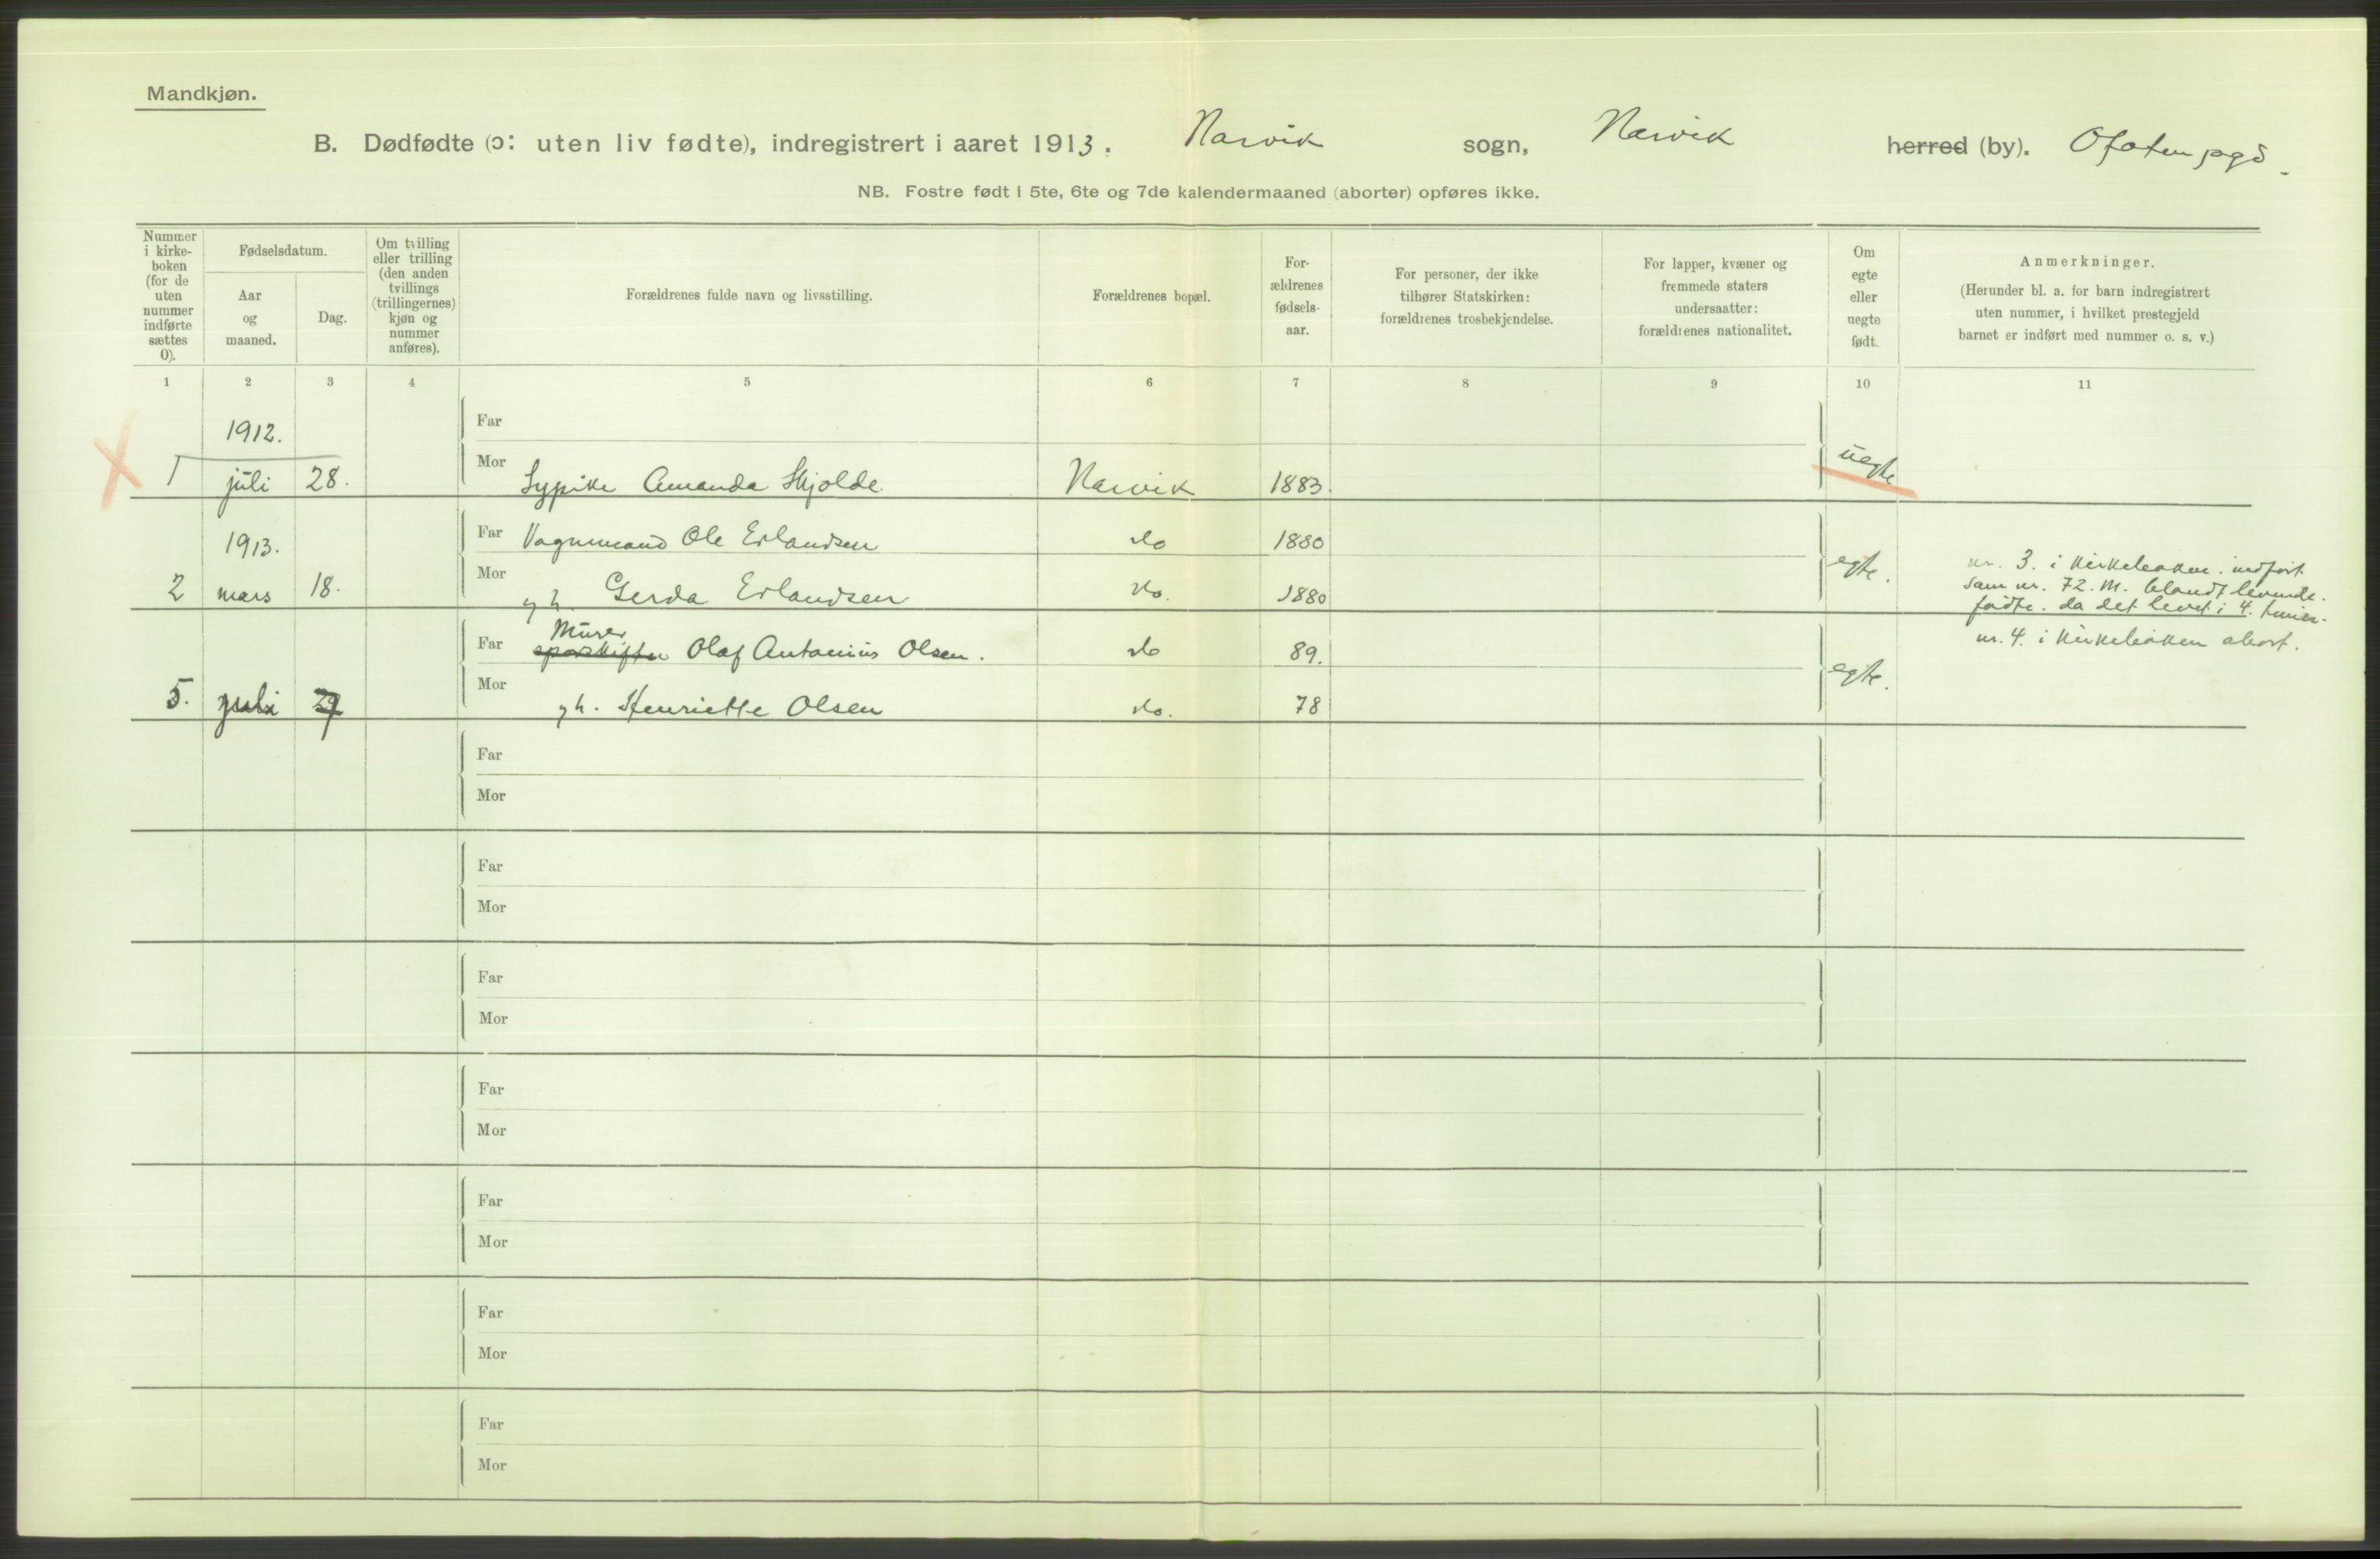 Mandkjøn.
B. Dødfødte (ɔ: uten liv fødte), indregistrert i aaret 1913. Narvik sogn, Narvik herred (by). Ofoten pgd.
NB. Fostre født i 5te, 6te og 7de kalendermaaned (aborter) opføres ikke.
Nummer
i kirke-
boken
(for de
uten
nummer
indførte
sættes
0).
Fødselsdatum.
Aar
og
maaned.
Dag.
Om tvilling
eller trilling
(den anden
tvillings
(trillingernes)
kjøn og
nummer
anføres).
Forældrenes fulde navn og livsstilling.
Forældrenes bopæl.
For-
ældrenes
fødsels-
aar.
For personer, der ikke
tilhører Statskirken:
forældrenes trosbekjendelse.
For lapper, kvæner og
fremmede staters
undersaatter:
forældrenes nationalitet.
Om
egte
eller
uegte
født.
Anmerkninger.
(Herunder bl. a. for barn indregistrert
uten nummer, i hvilket prestegjeld
barnet er indført med nummer o. s. v.)
1 2 3 4 5 6 7 8 9 10 11
1912.
Far
1 juli 28. Mor Sypike Amanda Skjolde. Narvik 1883. uegte
1913.
Far Vognmand Ole Erlandsen do 1880
2 mars 18. Mor g h. Gerda Erlandsen do. 1880 egte.
nr. 3. i kirkeboken. indført.
som nr. 72. M. blandt levende.
fødte. da det levet i 4. timer.
nr. 4. i kirkeboken abort.
Murer
Far sporskifter Olaf Antonius Olsen. do 89.
5. juli 29 Mor gh. Henriette Olsen do. 78 egte.
Far
Mor
Far
Mor
Far
Mor
Far
Mor
Far
Mor
Far
Mor
Far
Mor